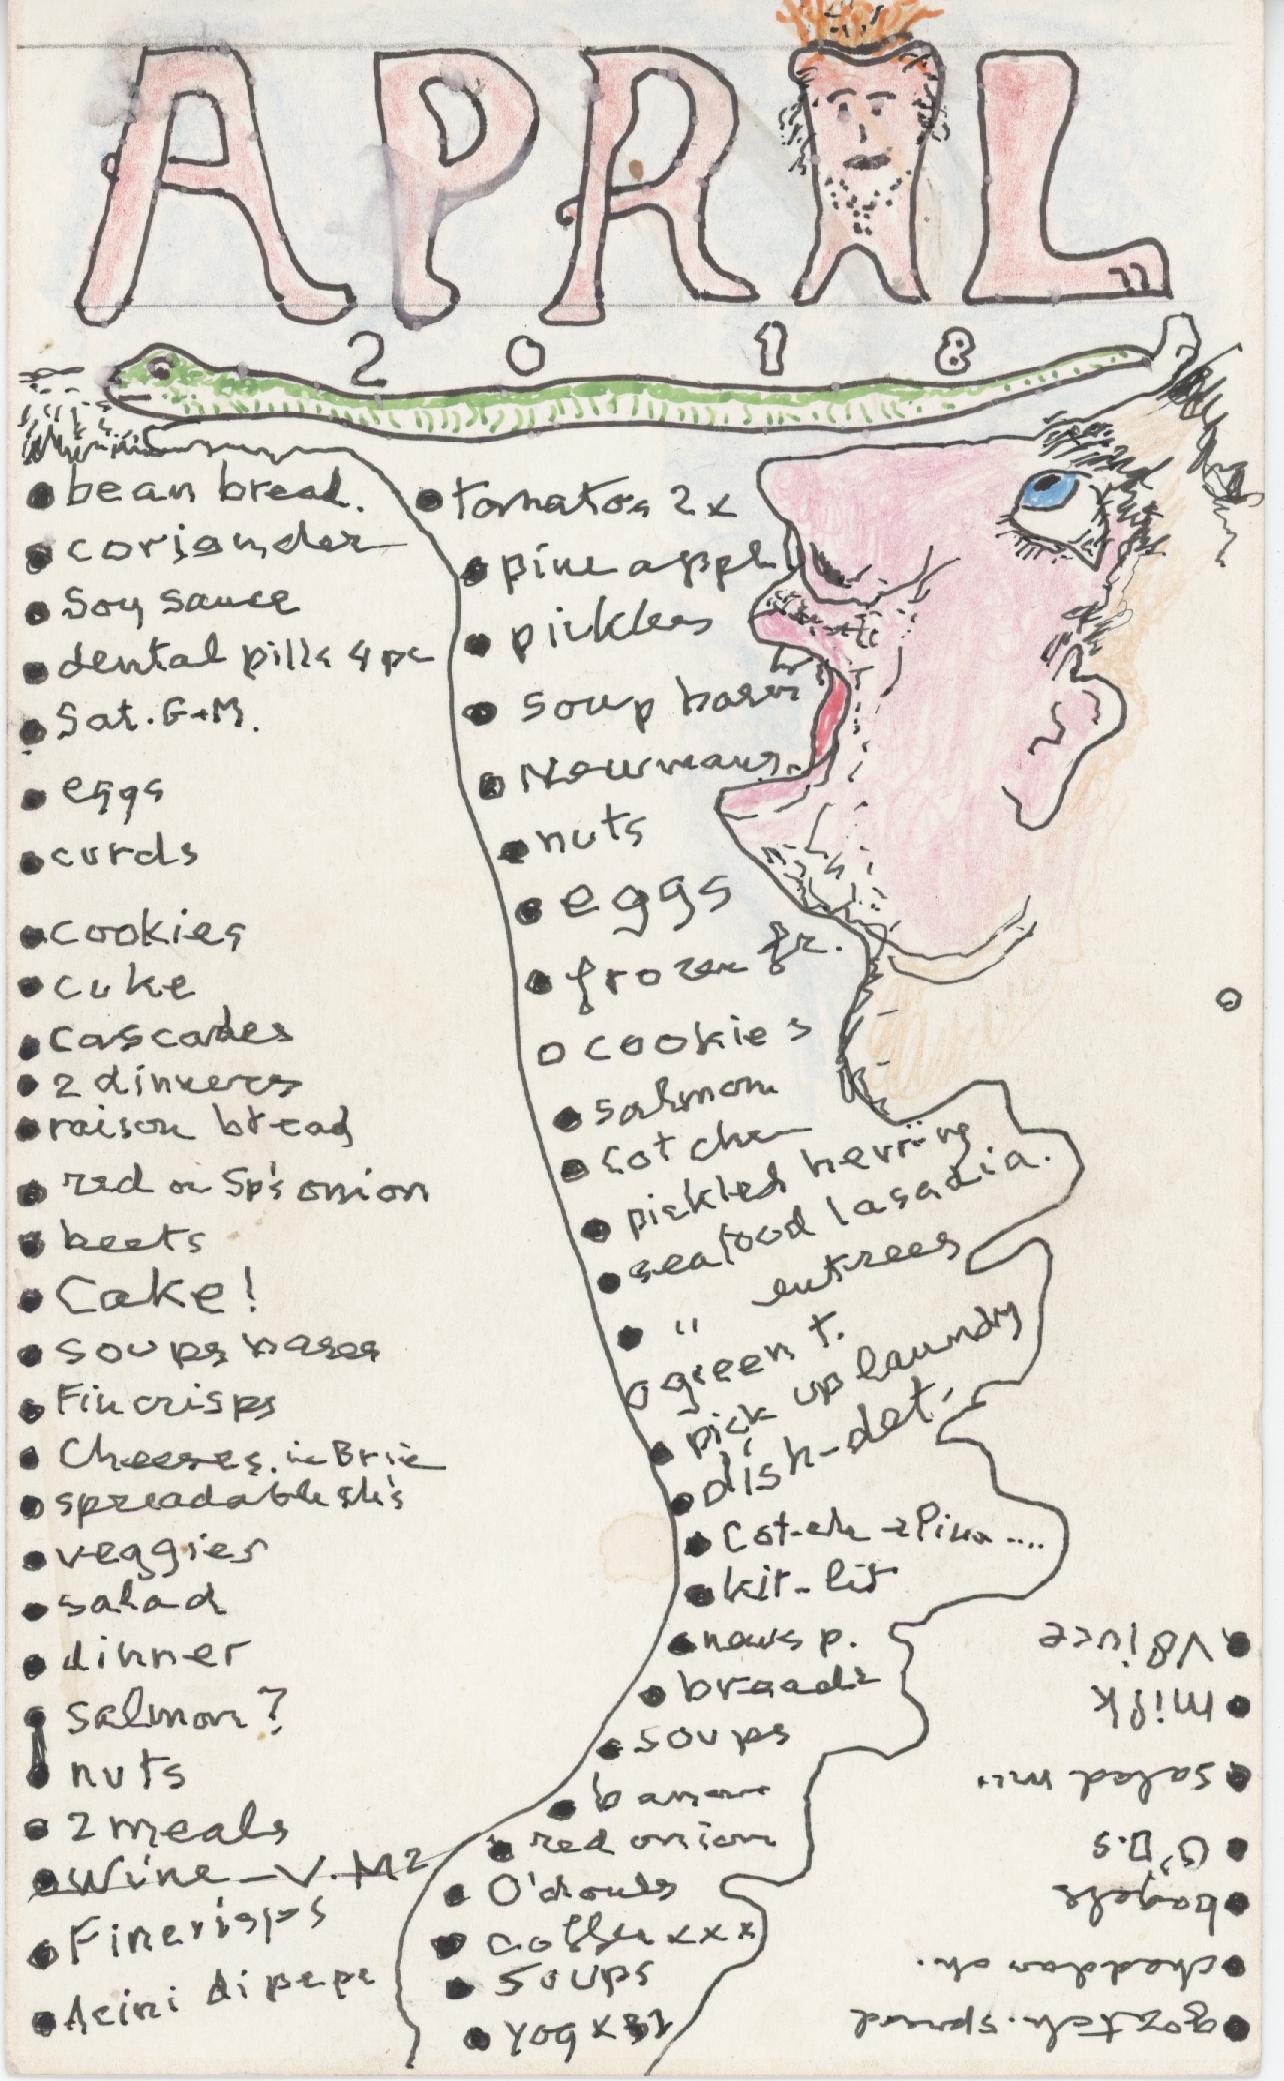 APRIL
2018
bean bread.
coriander
Soy sauce
dental pills 4 pc
Sat. G+M.
eggs
curds
cookies
cuke
cascades
2 dinners
raison bread
red or Sp's onion
beets
Cake!
soups bases
Fin crisps
Cheeses. ie Brie
spreadable
veggies
salad
dinner
salmon?
nuts
2 meals
Wine - V. M2
Fincrisps
Acini di pepe
tomatoes 2x
pineappl
pickles
soup bases
Newmans.
nuts
eggs
frozen fr.
cookies
salmon
cot che
pickled herring
seafood lasagna.
" entrees
green t.
pick up laundry
dish-det.
Cot-ch
kit-lit
news p.
breads
soups
banan
red onion
O'douls
coffee xxx
soups
yog x
V8 juce
milk
salad mix
O'D.s
bagels
cheddar ch.
goat ch. spread